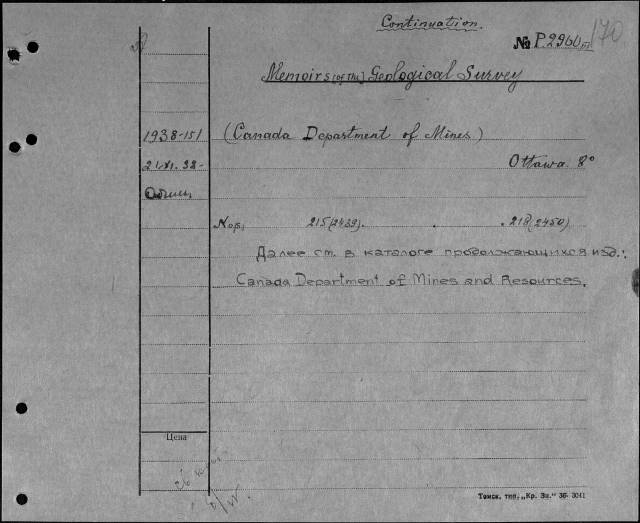 Continuation.
170
№ P.2960
Memoirs (of the) Geological Survey
1938-151 (Canada Department of Mines)
21.XI.38- Ottawa. 8°
Обмен
215(2439). . .218(2450)
Далее ст. в каталоге продолжающихся изд.:
Canada Department of Mines and Resources.
Цена
Томск, тип. „Кр. Зн." 36- 3041